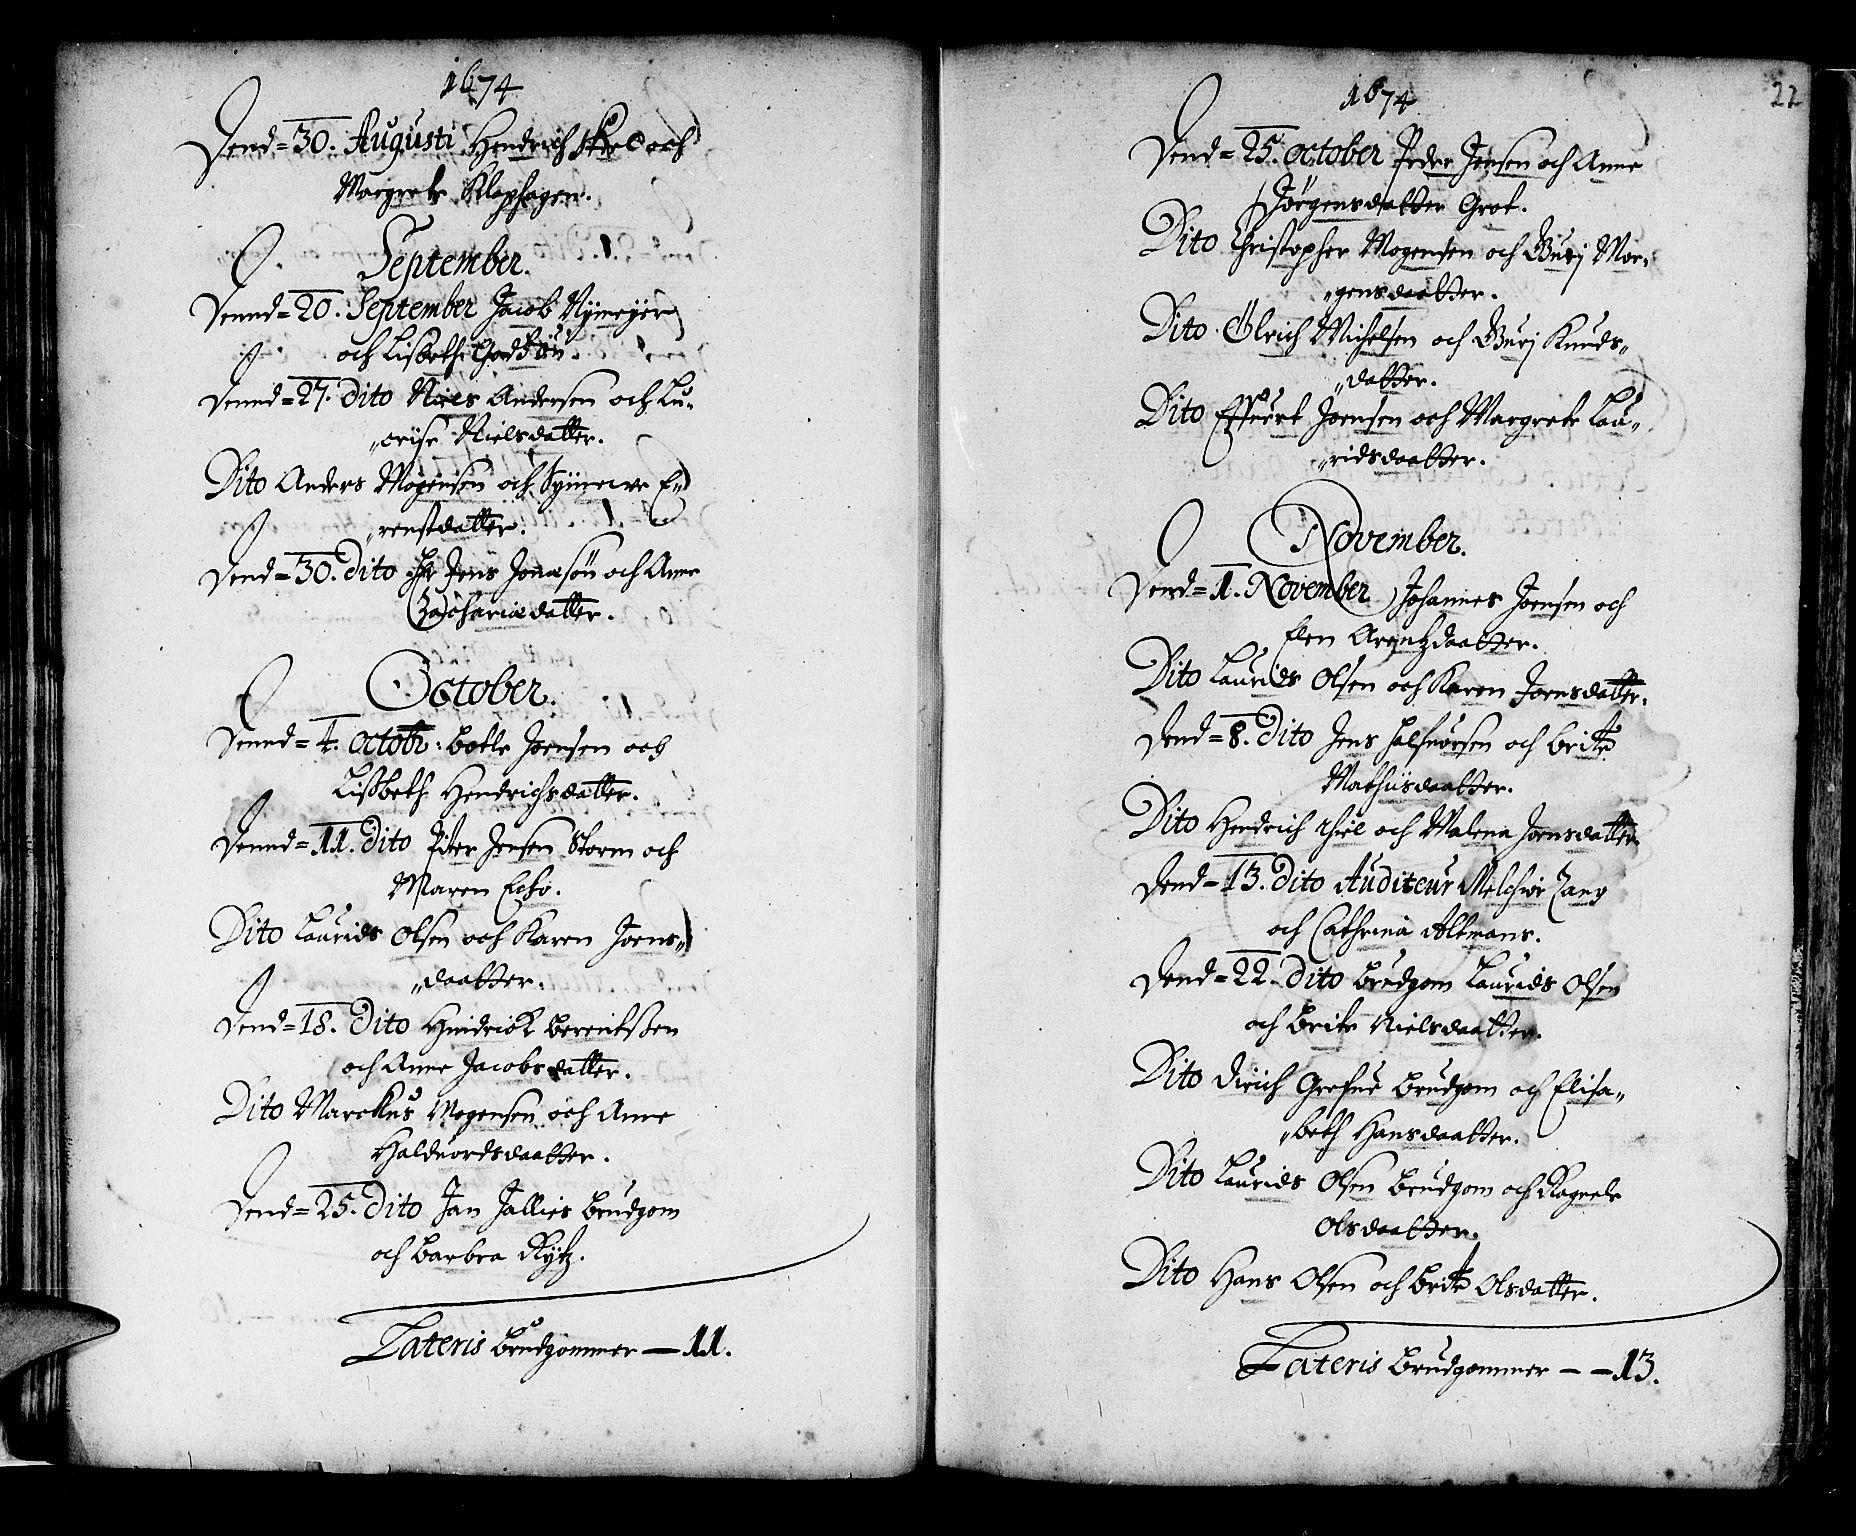 1674
Dend=30. Augusti Hendrich och
Margrete Klaphagen.
September.
Dennd=20. September Jacob Nÿmeÿer
och Lisbeth
Dennd=27. Dito Niels Andersen och Lu-
"orise Nielsdatter.
Dito Anders Mogensen och Sÿnnewe E-
"renstdatter.
Dend=30. Dito Hr Jens Jonæsøn och Anne
Zachariædatter.
October.
Dennd=4. Octobr: Botle Joensen och
Lisbeth Hendrichsdatter.
Dennd=11. Dito Piter Jensen Storm och
Maren
Dito Laurids Olsen och Karen Joens"
"daatter.
Dend=18. Dito Hindrick Berentssen
och Anne Jacobsdatter.
Dito Marckus Mogensen och Anne
Halduordsdaatter.
Dend=25. Dito Jan Jallies Brudgom
och Barbra Rÿtz.
Lateris Brudgommer — 11.
22
1674
Dend=25. October Peder Jensen och Anne
Jørgensdatter Grot.
Dito Christopher Mogensen och Gurj Mo-
"gensdaatter.
Dito Ølrich Michelsen och Gurj Knuds"
"datter.
Dito Effuert Joensen och Margrete Lau"
"ridsdaatter.
November.
Dend=1. November Johannes Joensen och
Elen Arentzdaatter.
Dito Laurids Olsen och Karen Joensdatter.
Dend=8. Dito Jens Halfuorsen och Britte
Mathiisdaatter.
Dito Hendrich Thiel och Malena Joensdatter
Dend=13. Dito Auditeur Melchior Zang
och Cathrina Altmans.
Dend=22. Dito Brudgom Laurids Olsen
och Brite Nielsdaatter.
Dito Dirich Grefue Brudgom och Elisa"
"beth Hansdaatter.
Dito Laurids Olsen Brudgom och Ragnele
Olsdaatter.
Dito Hans Olsen och Brite Olsdatter.
Lateris Brudgommer — — 13.